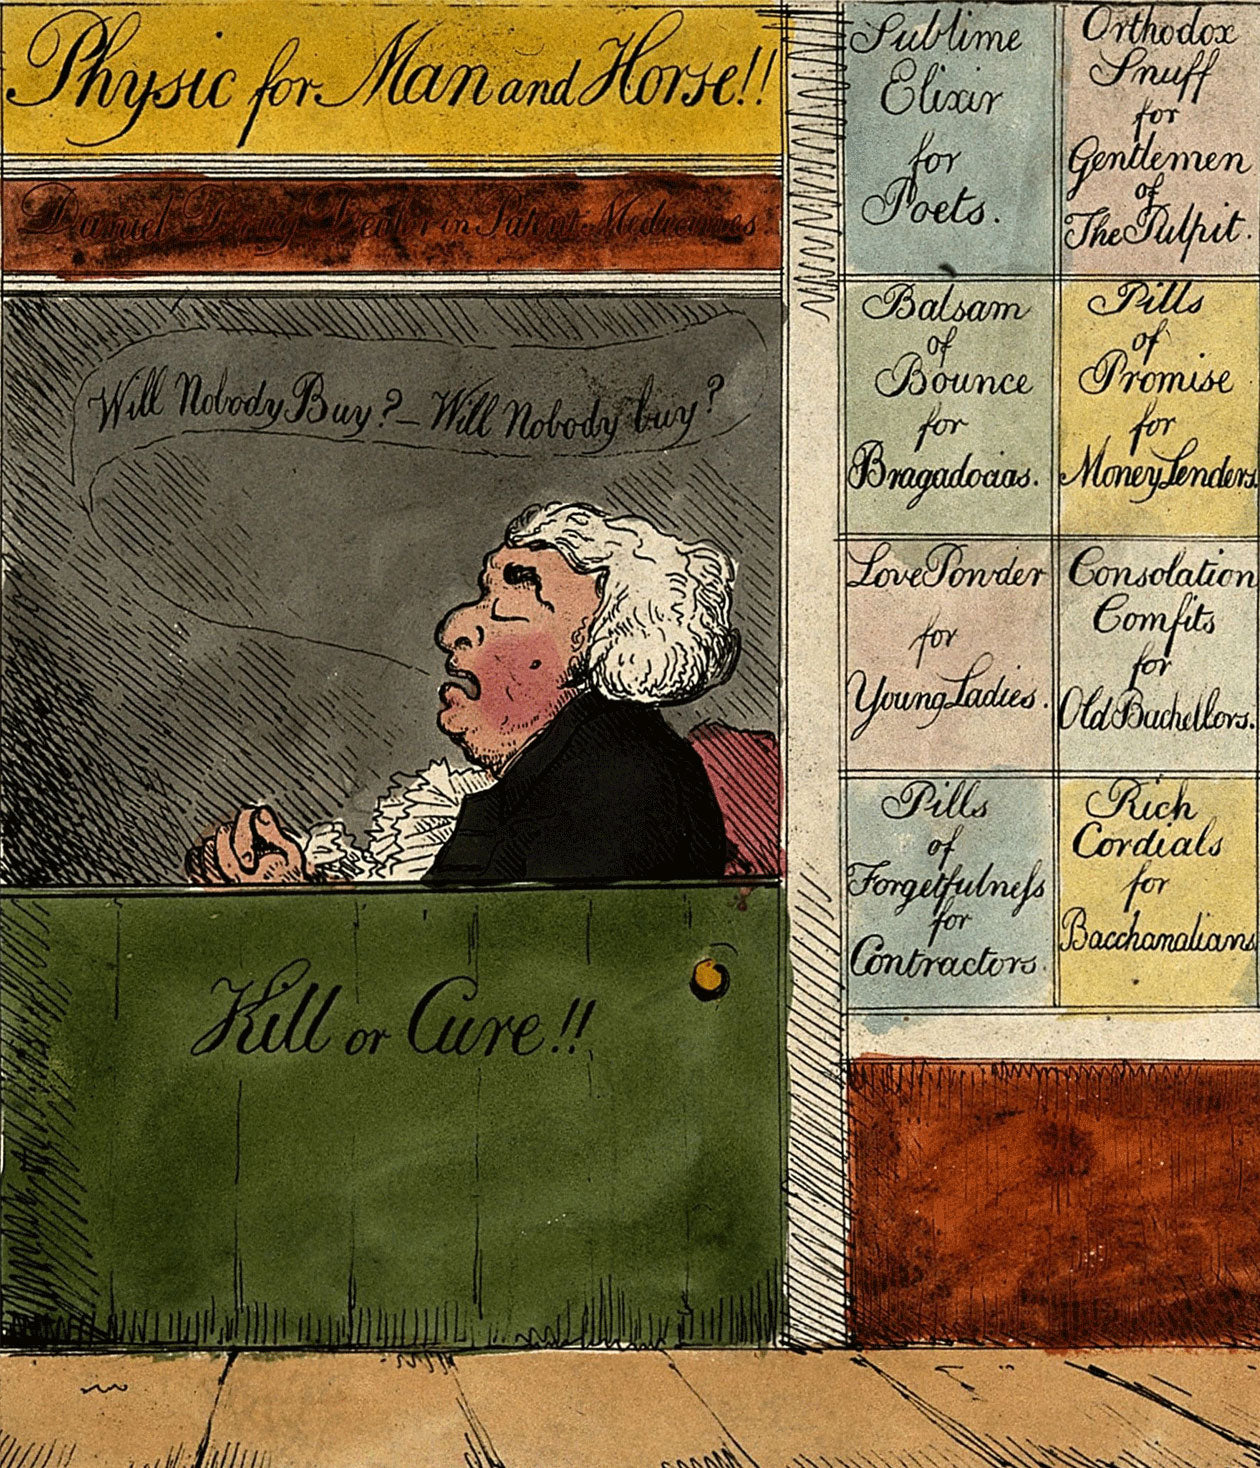 Physic for Man and Horse!!
Daniel Dealer in Patent Medicines.
Will Nobody Buy? – Will Nobody buy?
Kill or Cure!!
Sublime
Elixir
for
Poets.
Orthodox
Snuff
for
Gentlemen
of
The Pulpit.
Balsam
of
Bounce
for
Bragadocias.
Pills
of
Promise
for
Money Lenders.
Love Powder
for
Young Ladies.
Consolation
Comfits
for
Old Bachellors.
Pills
of
Forgetfulneſs
for
Contractors.
Rich
Cordials
for
Bacchanalians